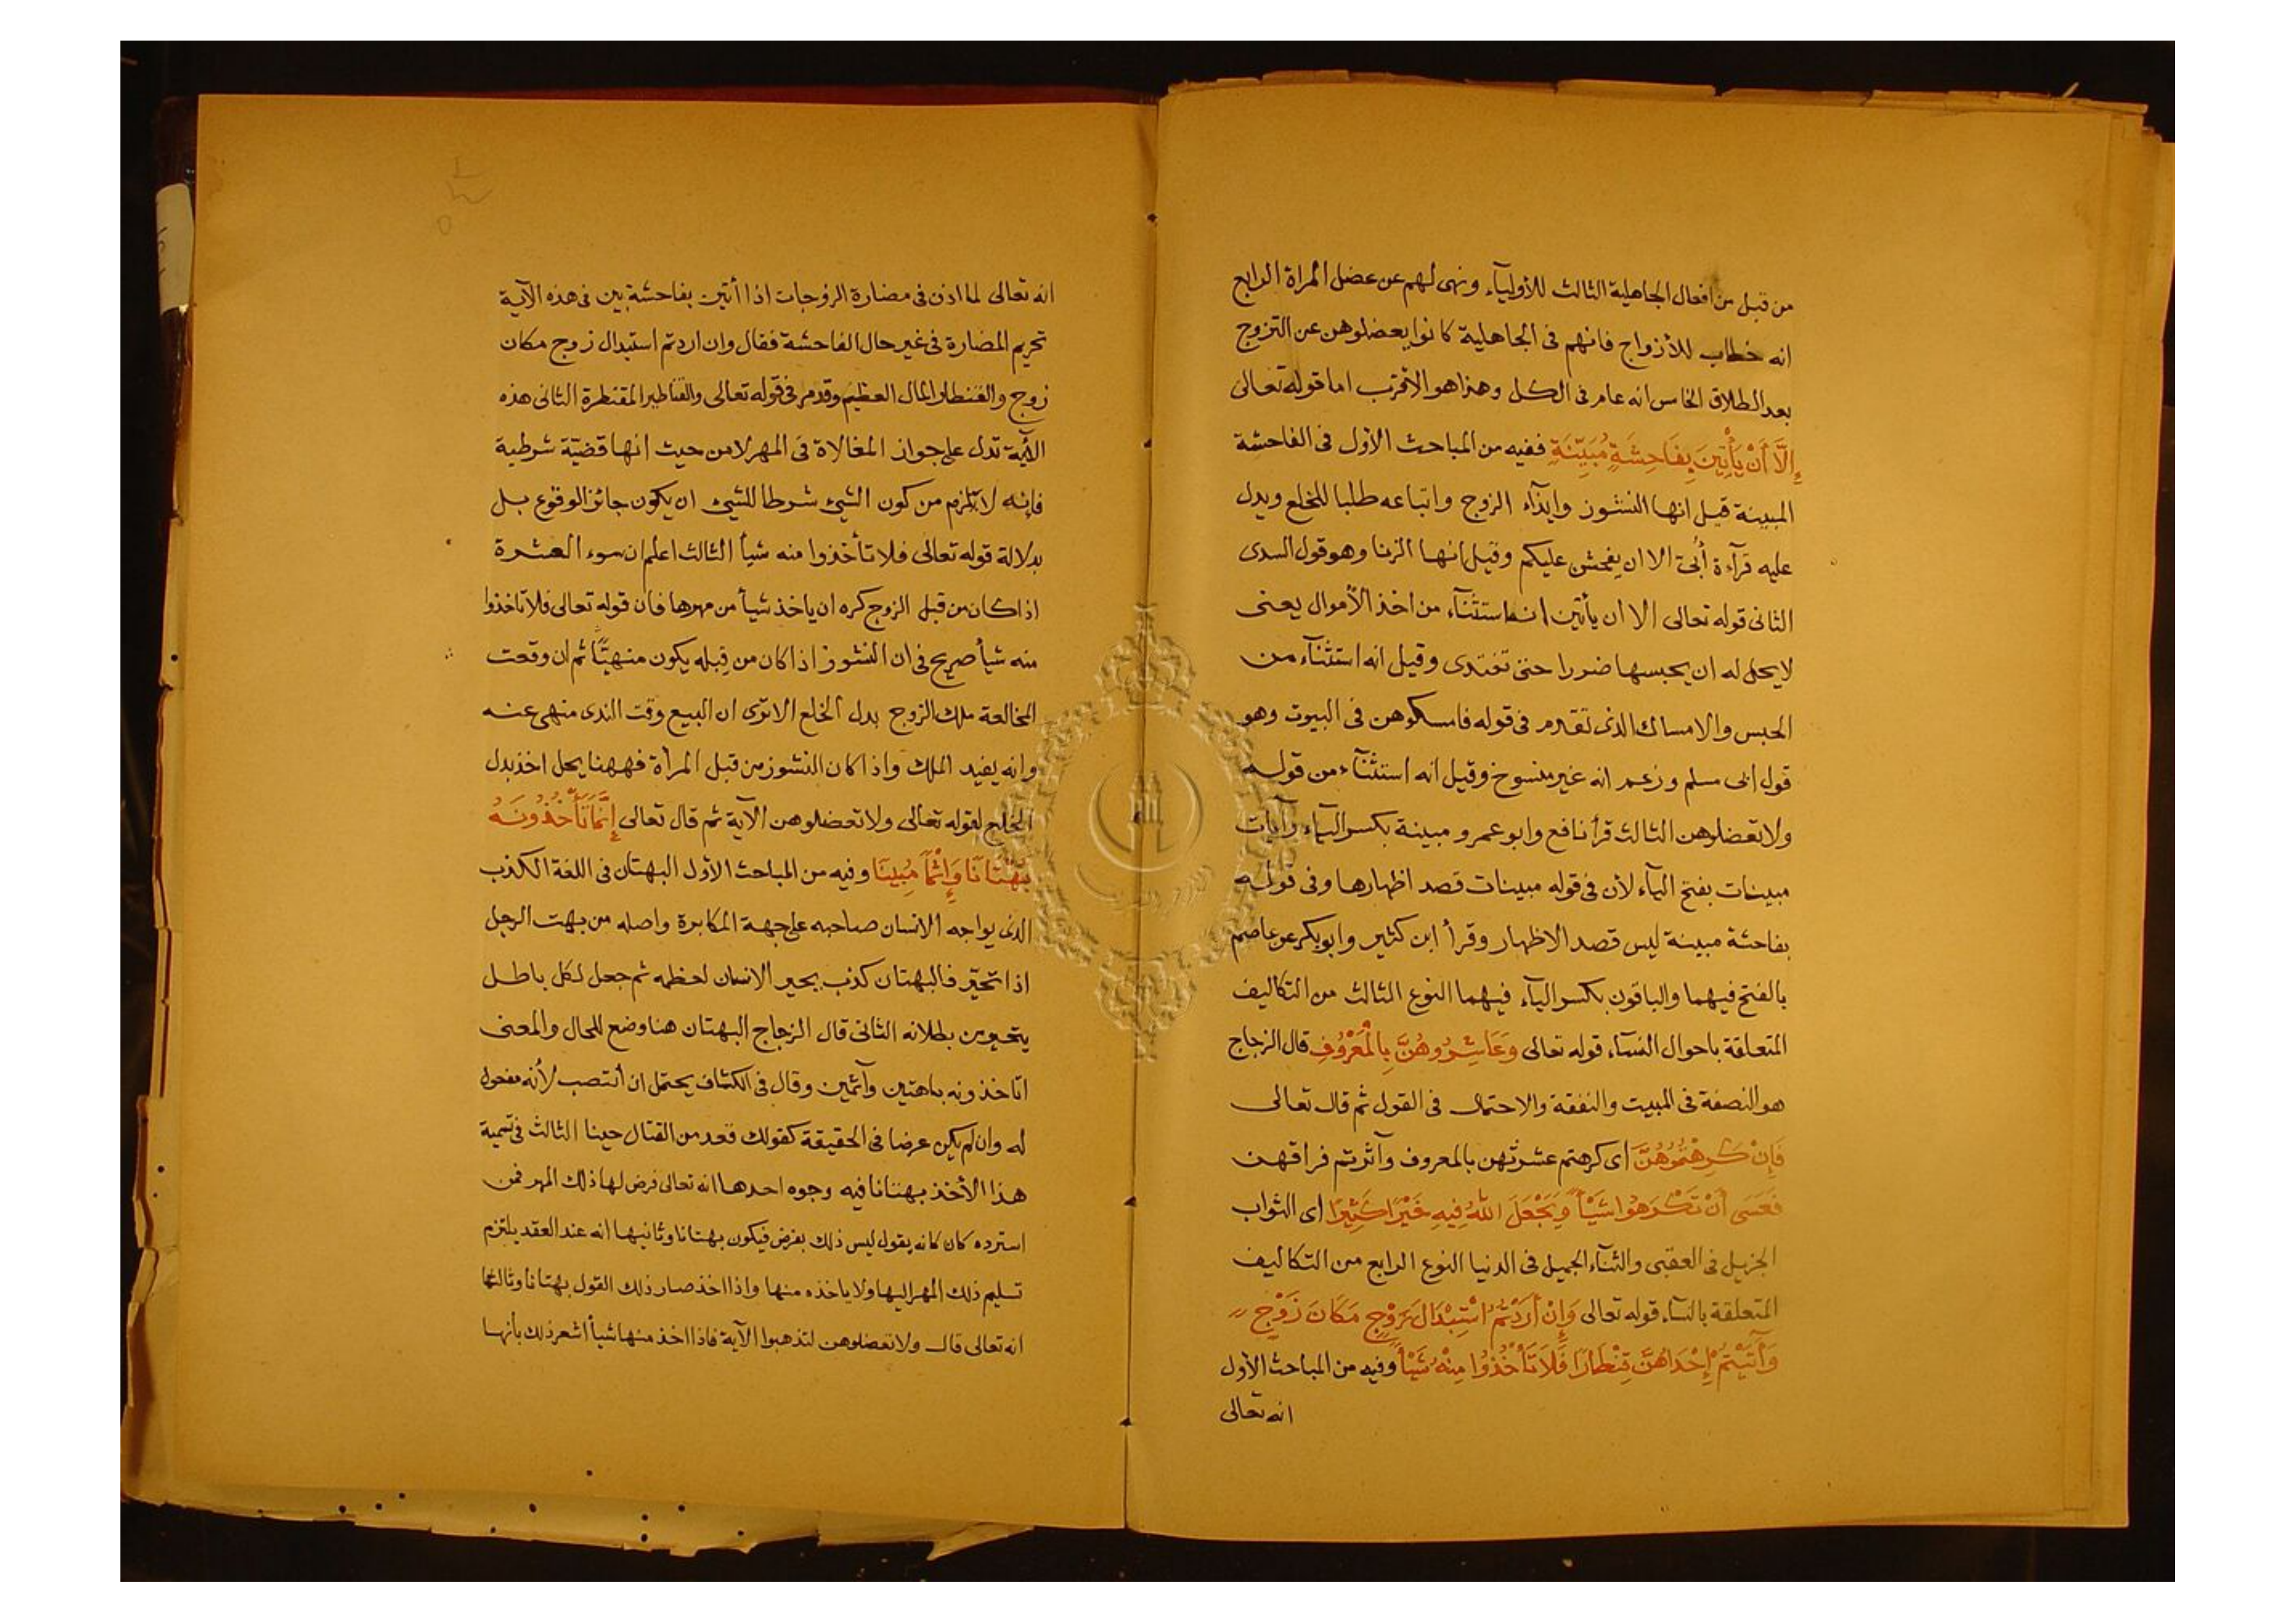 من قبل من افعال الجاهلية الثالث للأوليآء ونهى لهم عن عضل المراة الرابع
انه خطاب للأزواج فانهم فى الجاهلية كانوا يعضلوهن عن التزوج
بعد الطلاق الخامس انه عام فى الكل وهذا هو الأقرب اما قوله تعالى
إِلَّا أَنْ يَأْتِينَ بِفَاحِشَةٍ مُبَيِّنَةٍ ففيه من المباحث الأول فى الفاحشة
المبينة قيل انها النشوز وايذآء الزوج واتباعه طلبا للخلع ويدل
عليه قرآءة أُبىّ الا ان يفحش عليكم وقيل انها الزنا وهو قول السدى
الثانى قوله تعالى الا ان يأتين انه استثنآء من اخذ الأموال يعنى
لا يحل له ان يحبسها ضررا حتى تفتدى وقيل انه استثنآء من
الحبس والامساك الذى تقدم فى قوله فامسكوهن فى البيوت وهو
قول ابى مسلم وزعم انه غير منسوخ وقيل انه استثنآء من قوله
ولا تعضلوهن الثالث قرأ نافع وابو عمرو مبينة بكسر اليآء وآيات
مبينات بفتح اليآء لأن فى قوله مبينات قصد اظهارها وفى قوله
بفاحشة مبينة ليس قصد الاظهار وقرأ ابن كثير وابو بكر عن عاصم
بالفتح فيهما والباقون بكسر اليآء فيهما النوع الثالث من التكاليف
المتعلقة باحوال النسآء قوله تعالى وَعَاشِرُوهُنَّ بِالْمَعْرُوفِ قال الزجاج
هو النصفة فى المبيت والنفقة والاحتمال فى القول ثم قال تعالى
فَإِنْ كَرِهْتُمُوهُنَّ اى كرهتم عشرتهن بالمعروف وآثرتم فراقهن
فَعَسَى أَنْ تَكْرَهُوا شَيْأً وَيَجْعَلَ اللَّهُ فِيهِ خَيْرًا كَثِيرًا اى الثواب
الجزيل فى العقبى والثنآء الجميل فى الدنيا النوع الرابع من التكاليف
المتعلقة بالنسآء قوله تعالى وَإِنْ أَرَدْتُمُ اسْتِبْدَالَ زَوْجٍ مَكَانَ زَوْجٍ
وَآتَيْتُمْ إِحْدَاهُنَّ قِنْطَارًا فَلَا تَأْخُذُوا مِنْهُ شَيْأً وفيه من المباحث الأول
انه تعالى
انه تعالى لما اذن فى مضارة الزوجات اذا أتين بفاحشة بين فى هذه الآية
تحريم المضارة فى غير حال الفاحشة فقال وان اردتم استبدال زوج مكان
زوج والقنطار المال العظيم وقد مر فى قوله تعالى والقناطير المقنطرة الثانى هذه
الآية تدل على جواز المغالاة فى المهر لا من حيث انها قضيّة شرطية
فإنه لا يلزم من كون الشيء شرطا للشيء ان يكون جائز الوقوع بل
بدلالة قوله تعالى فلا تأخذوا منه شيأ الثالث اعلم ان سوء العشرة
اذا كان من قبل الزوج كره ان ياخذ شيأ من مهرها فان قوله تعالى فلا تاخذوا
منه شيأ صريح فى ان النشوز اذا كان من قِبله يكون منهيًّا ثم ان وقعت
المخالعة ملك الزوج بدل الخلع الا ترى ان البيع وقت الندى منهى عنه
وانه يفيد الملك واذا كان النشوز من قبل المرأة فههنا يحل اخذ بدل
الخلع لقوله تعالى ولا تعضلوهن الآية ثم قال تعالى إِنَّمَا تَأْخُذُونَهُ
بُهْتَانًا وَإِثْمًا مُبِينًا وفيه من المباحث الأول البهتان فى اللغة الكذب
الذى يواجه الانسان صاحبه على جهة المكابرة واصله من بهت الرجل
اذا تحيّر فالبهتان كذب يحير الانسان لعظمه ثم جعل لكل باطل
يتحير من بطلانه الثانى قال الزجاج البهتان هنا وضع للحال والمعنى
اتاخذونه باهتين وآثمين وقال فى الكشاف يحتمل ان أنتصب لأنه مفعول
له وان لم يكن عرضا فى الحقيقة كقولك قعد من القتال حينا الثالث فى تسمية
هذا الأخذ بهتانا فيه وجوه احدها انه تعالى فرض لها ذلك المهر فمن
استرده كان كانه يقول ليس ذلك بفرض فيكون بهتانا وثانيها انه عند العقد يلتزم
تسليم ذلك المهر اليها ولا ياخذه منها واذا اخذ صار ذلك القول بهتانا وثالثها
انه تعالى قال ولا تعضلوهن لتذهبوا الآية فاذا اخذ منها شيأ اشعر ذلك بأنها